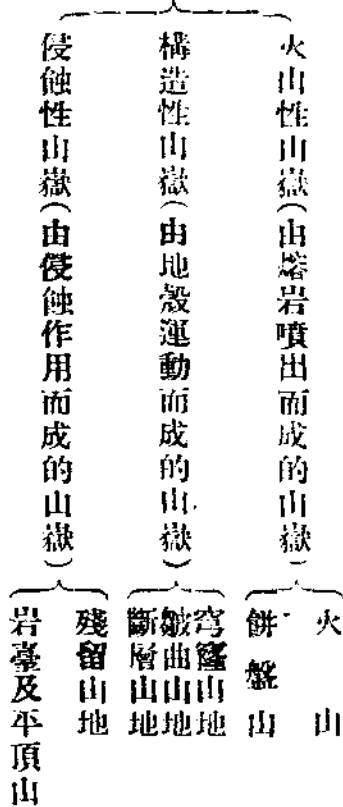 火山性山嶽(由熔岩噴出而成的山嶽)
火山
餅盤山
構造性山嶽(由地殼運動而成的山嶽)
穹窿山地
皺曲山地
斷層山地
侵蝕性山嶽(由侵蝕作用而成的山嶽)
殘留山地
岩臺及平頂山